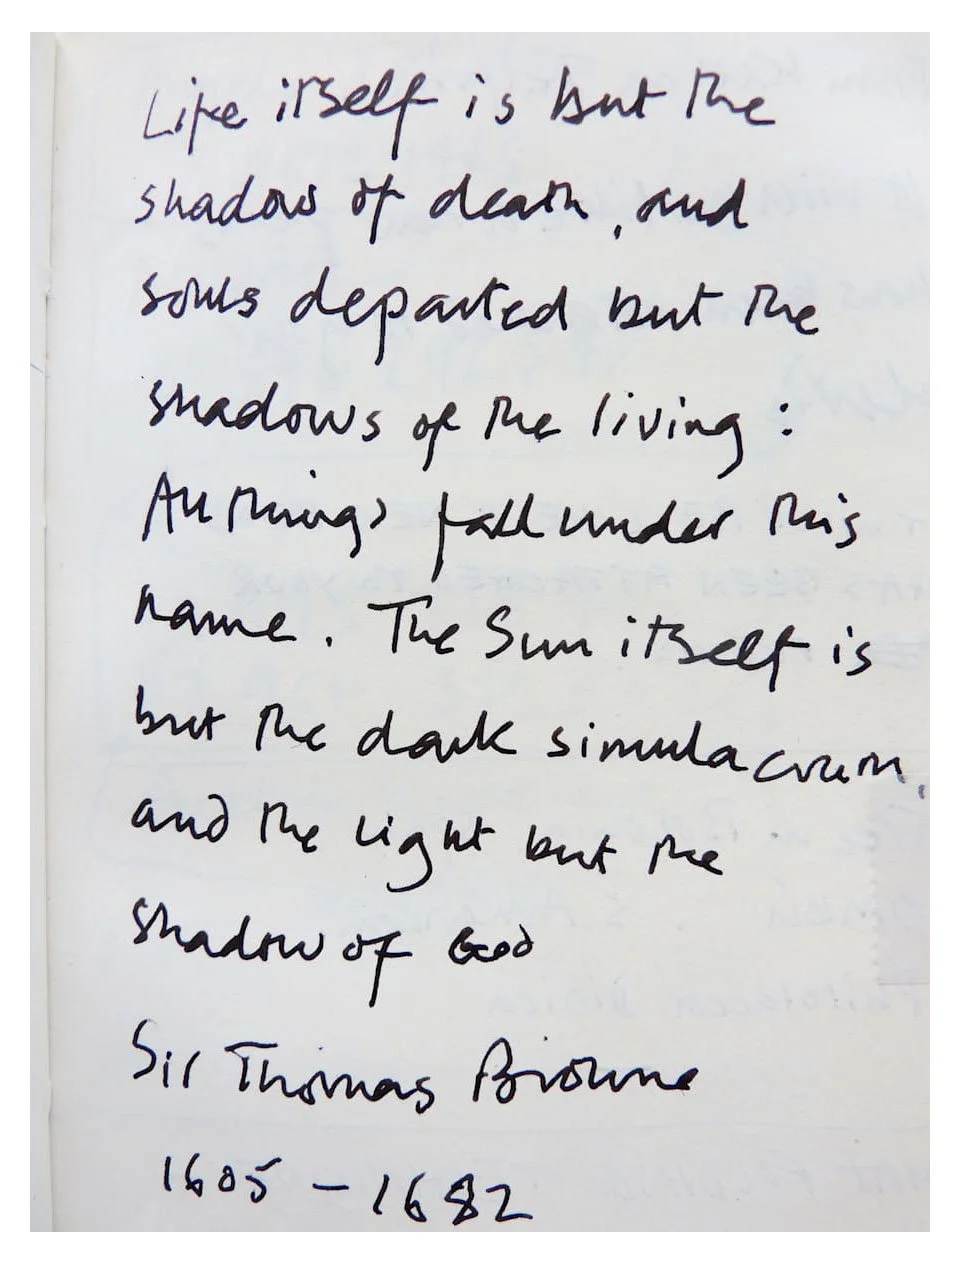 Life itself is but the
shadow of death, and
souls departed but the
shadows of the living :
All things fall under this
name. The Sun itself is
but the dark simulacrum,
and the light but the
shadow of God
Sir Thomas Browne
1605 - 1682